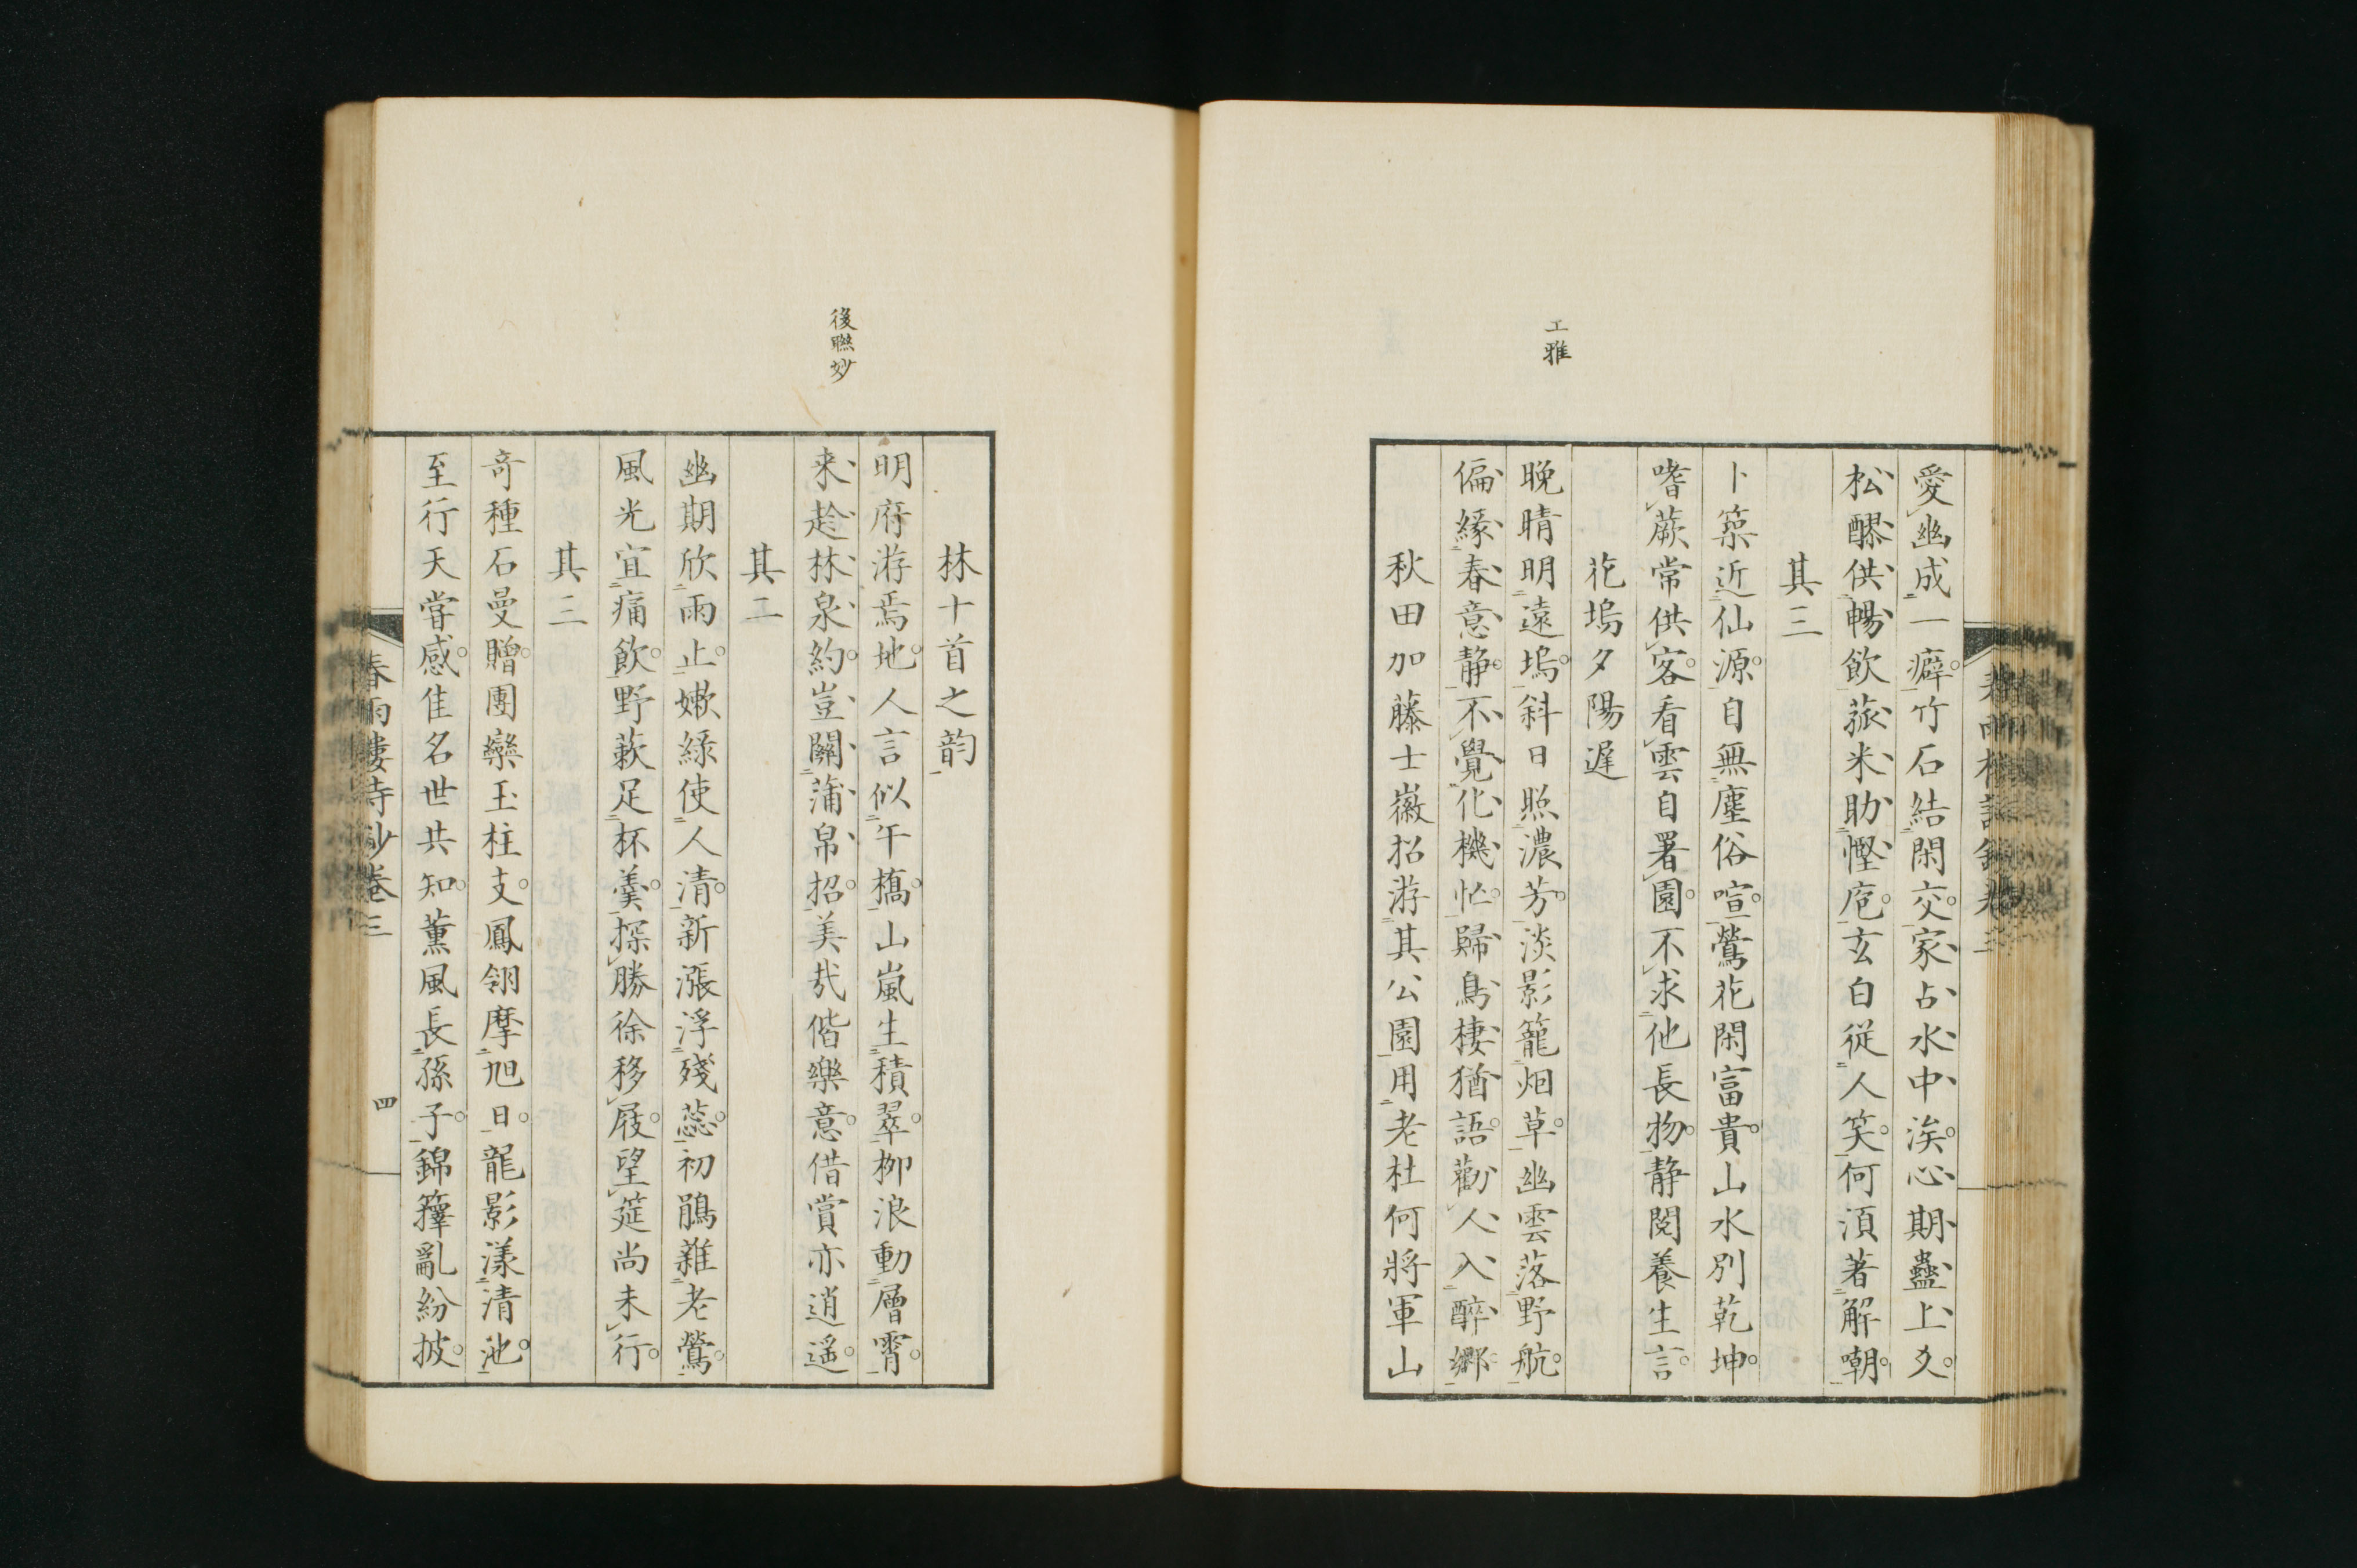 工雅
愛幽成一癖竹石結閑交家占水中涘心期蠱上爻
松醪供暢飲菰米助慳庖玄白從人笑何湏著解嘲
其三
卜築近仙源自無塵俗喧鶯花閑富貴山水別乾坤
嗜蕨常供客看雲自署園不求他長物静閲養生言
花塢夕陽遲
晩晴明遠塢斜日照濃芳淡影籠烟草幽雲落野航
偏緣春意静不覺化機忙歸鳥棲猶語勸人入醉鄉
秋田加藤士徽招游其公園用老杜何將軍山
後聯妙
林十首之韵
明府游焉地人言似午橋山嵐生積翠柳浪動層霄
来趁林泉約豈關蒲帛招美哉偕樂意借賞亦逍遥
其二
幽期欣雨止嫰綠使人清新漲浮殘蕊初鵑雜老鶯
風光宜痛飲野蔌足杯羹探勝徐移屐望筵尚未行
其三
奇種石曼贈團欒玉柱支鳳翎摩旭日龍影漾清池
至行天嘗感隹名世共知薰風長孫子錦籜亂紛披
春雨樓詩鈔卷三
四